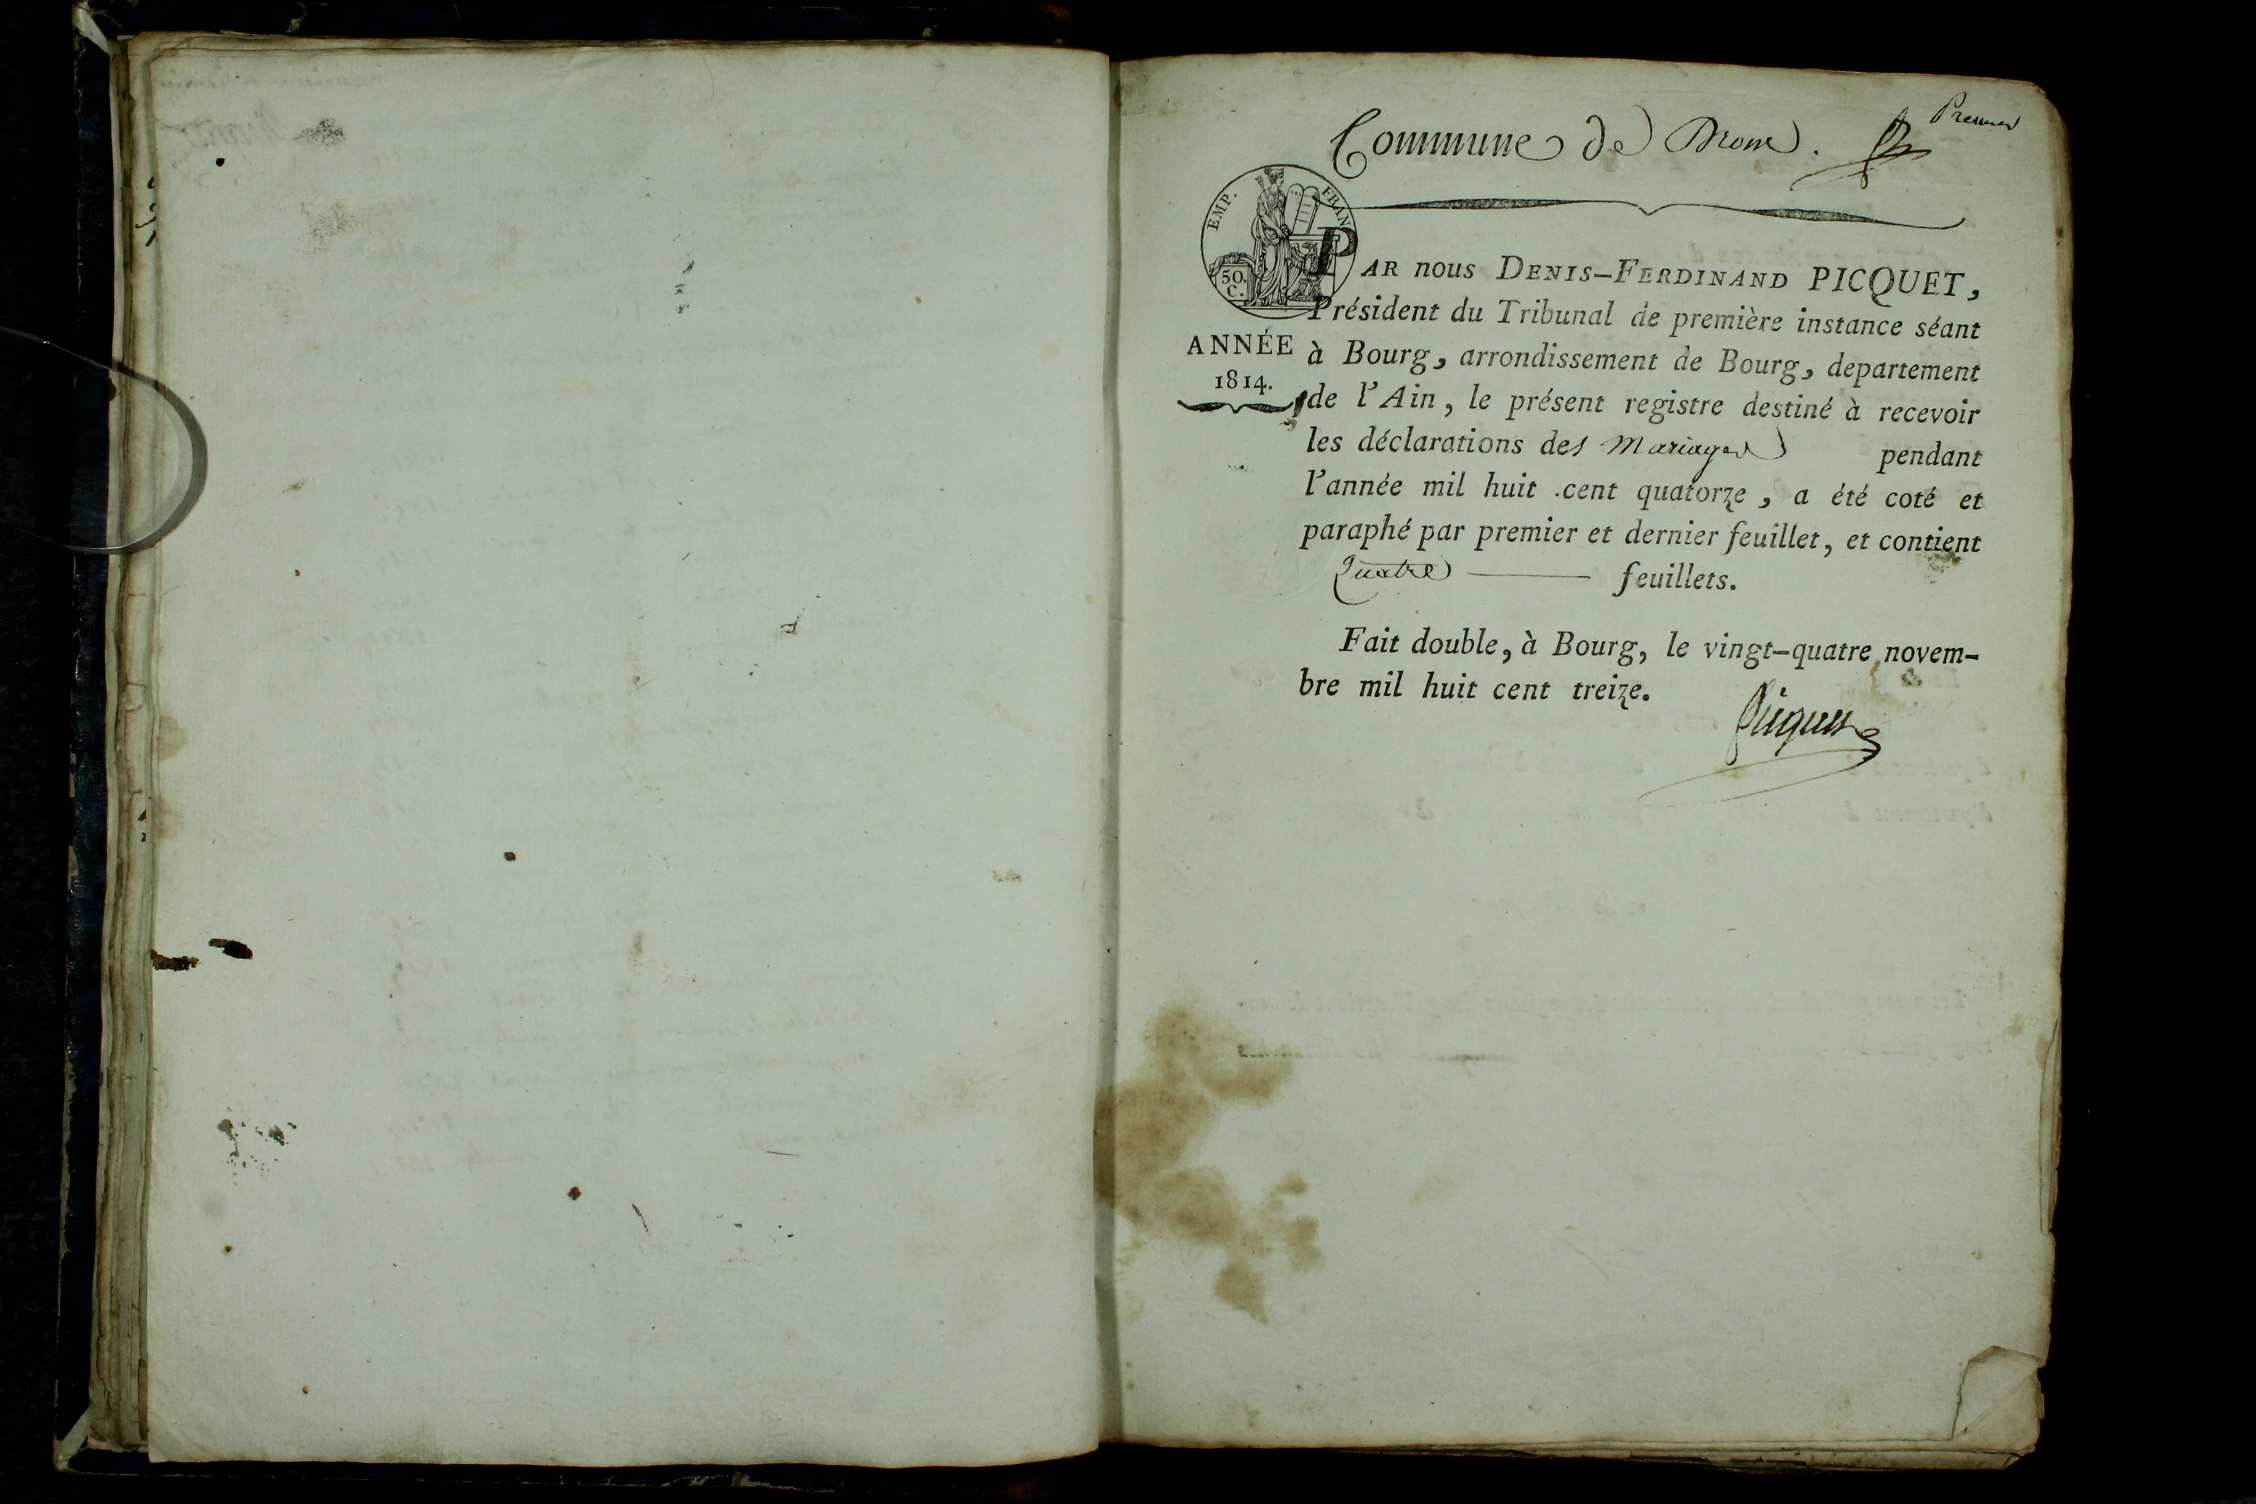 Premier
Commune de Drom.
EMP. FRAN
50.
C.
PAR nous DENIS-FERDINAND PICQUET,
Président du Tribunal de première instance séant
ANNÉE
1814.
à Bourg, arrondissement de Bourg, departement
de l'Ain, le présent registre destiné à recevoir
les déclarations des Mariages pendant
l'année mil huit cent quatorze, a été coté et
paraphé par premier et dernier feuillet, et contient
Quatre feuillets.
Fait double, à Bourg, le vingt-quatre novem-
bre mil huit cent treize.
Picquet